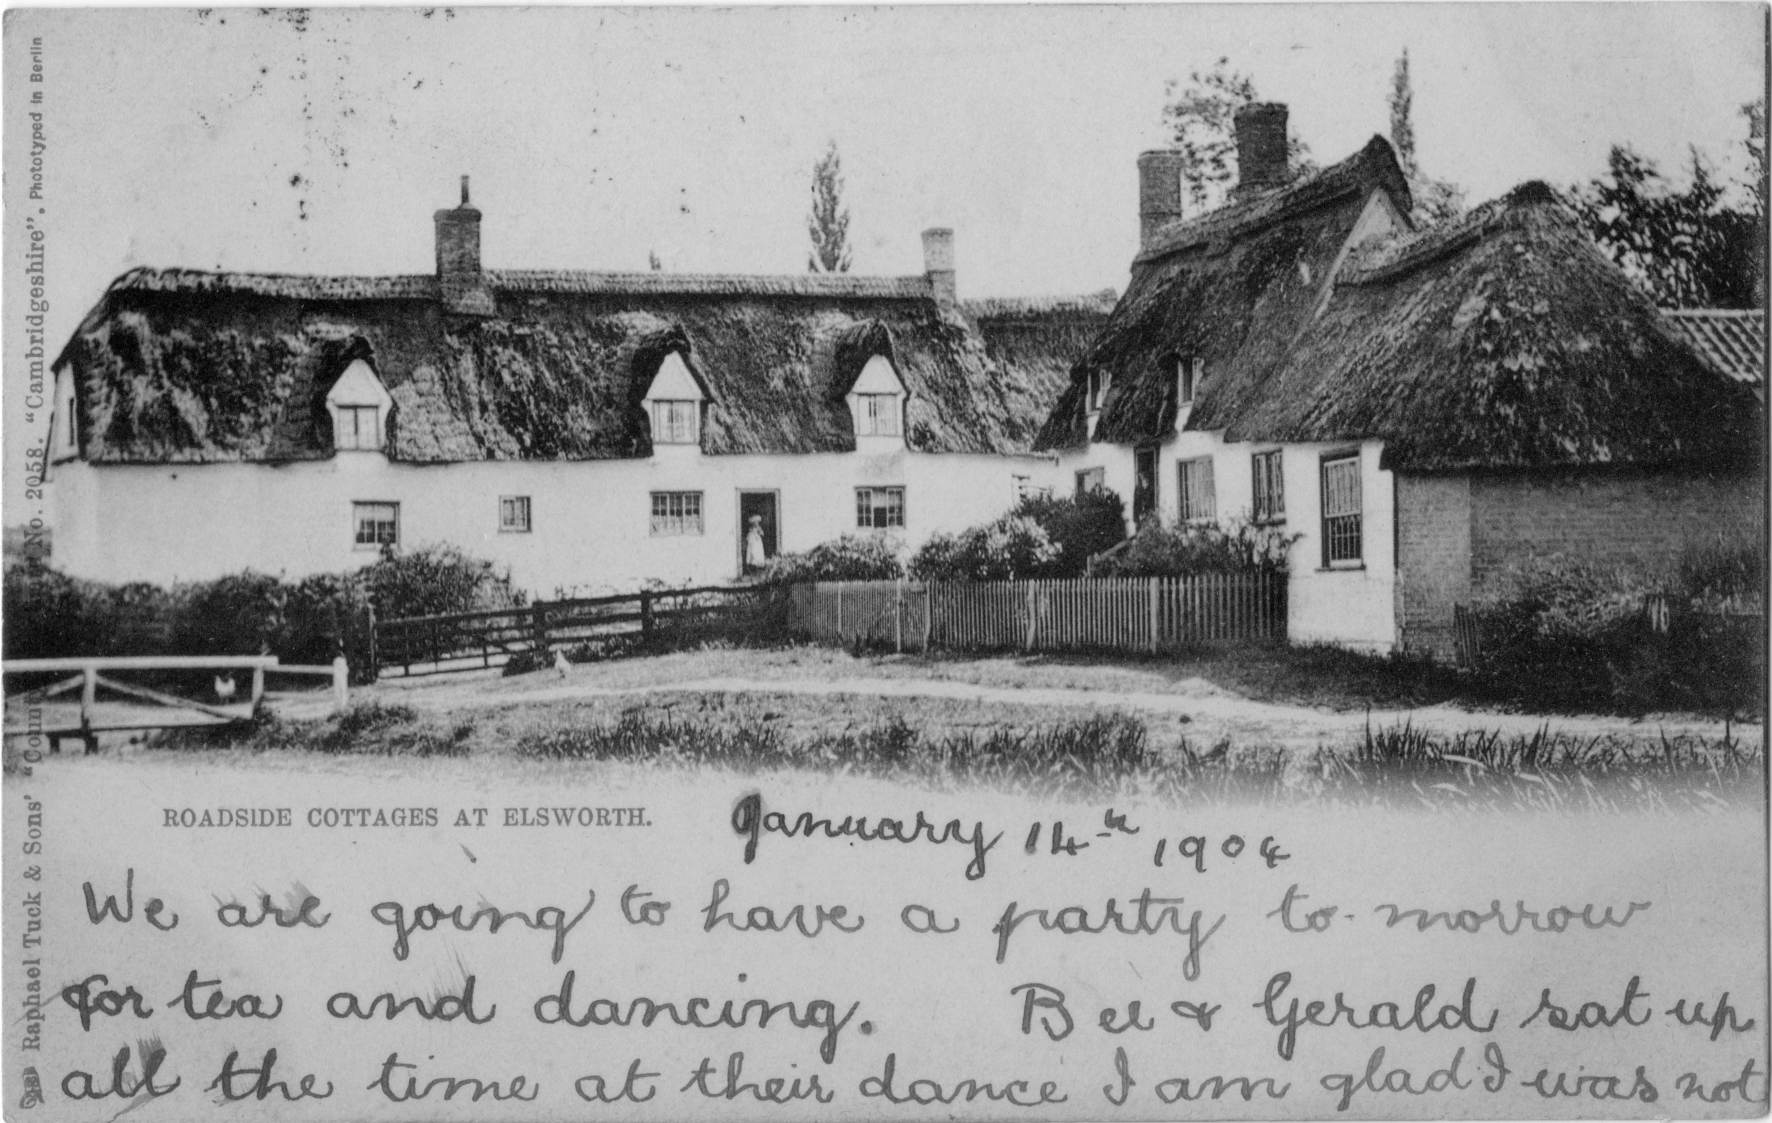 Raphael Tuck & Sons' No. 2058. "Cambridgeshire". Phototyped in Berlin
ROADSIDE COTTAGES AT ELSWORTH.
January 14th 1904
We are going to have a party to-morrow
for tea and dancing. Bee & Gerald sat up
all the time at their dance I am glad I was not